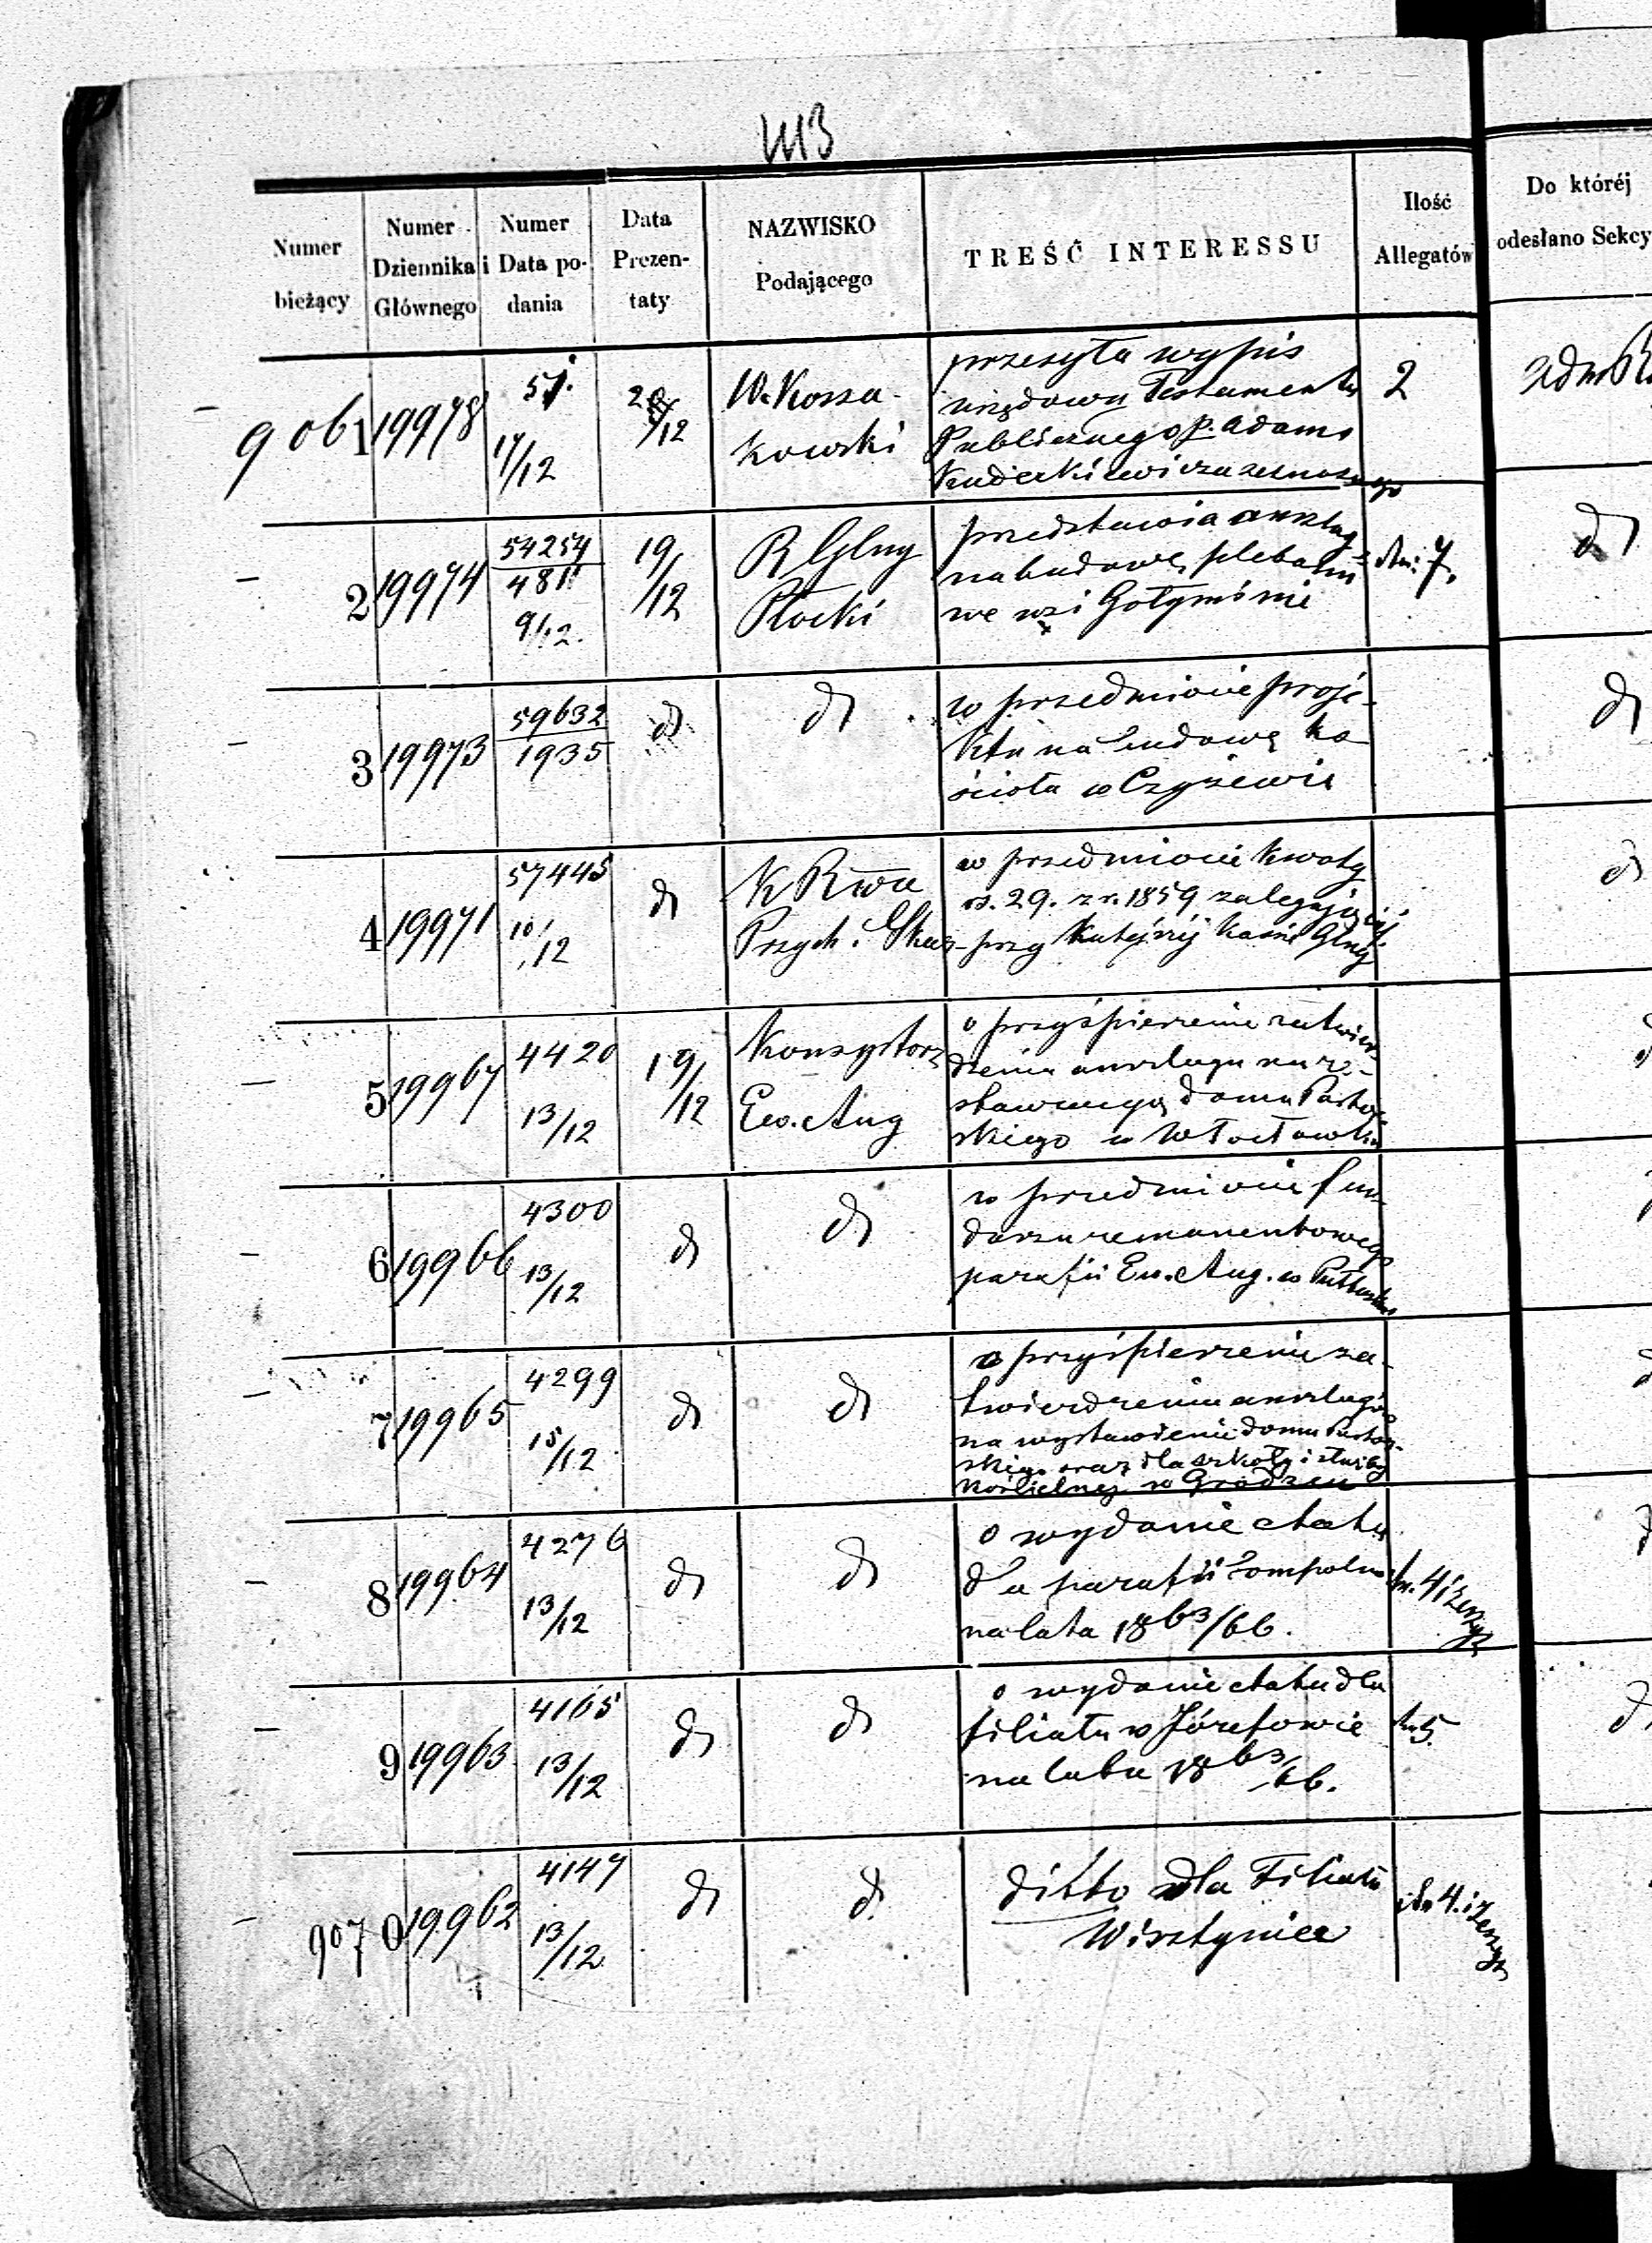 Numer bieżący
Numer Dziennika Głównego
Numer i Data podania
Data Prezentaty
NAZWISKO Podającego
TREŚĆ INTERESSU
Ilość Allegatów
Do któréj odesłano Sekcy
9061 19978
17/12
20/12
W. Kossa-
kowski
przesyła wypis
urzędowy Testamentu
Publicznego p. Adama
2
2 19974
54254
481
9/12.
19/12
R Glny
Płocki
przedstawia anszlag
na budowę plebanii
we wsi Gołyminie
7.
d
3 19973
59632
1935
d
d
w przedmiocie proje-
ktu na budowę ko-
ścioła w Czyżewie
d
4 19971
57445
10/12
d
K Rwa
Przych. i Skar.
w przedmiocie kwoty
rs. 29. z r. 1859 zalegającej
przy tutejszej kasie Głnej
d
5 19967
4420
13/12
19/12
Konsystorz
Ew. Aug
o przyśpieszenie zatwier-
dzenia anszlagu na
domu Pastor-
skiego w Włocławku
6 19966
4300
13/12
d
d
w przedmiocie fun-
duszu remanentowego
parafii Ew. Aug. w Pułtusku
7 19965
4299
15/12
d
d
o przyśpieszenie za-
twierdzenia anszlagów
na wystawienie domu Pastor-
skiego oraz dla szkoły i służby
kościelnej w Grodzcu
8 19964
4276
13/12
d
d
o wydanie etatu
dla parafii Sompolno
na lata 1863/66.
9 19963
4165
13/12
d
d
o wydanie etatu dla
filiału w Józefowie
na lata 1863/66.
5.
d
9070 19962
4147
13/12
d
d
ditto dla Filiału
Wisztyniec